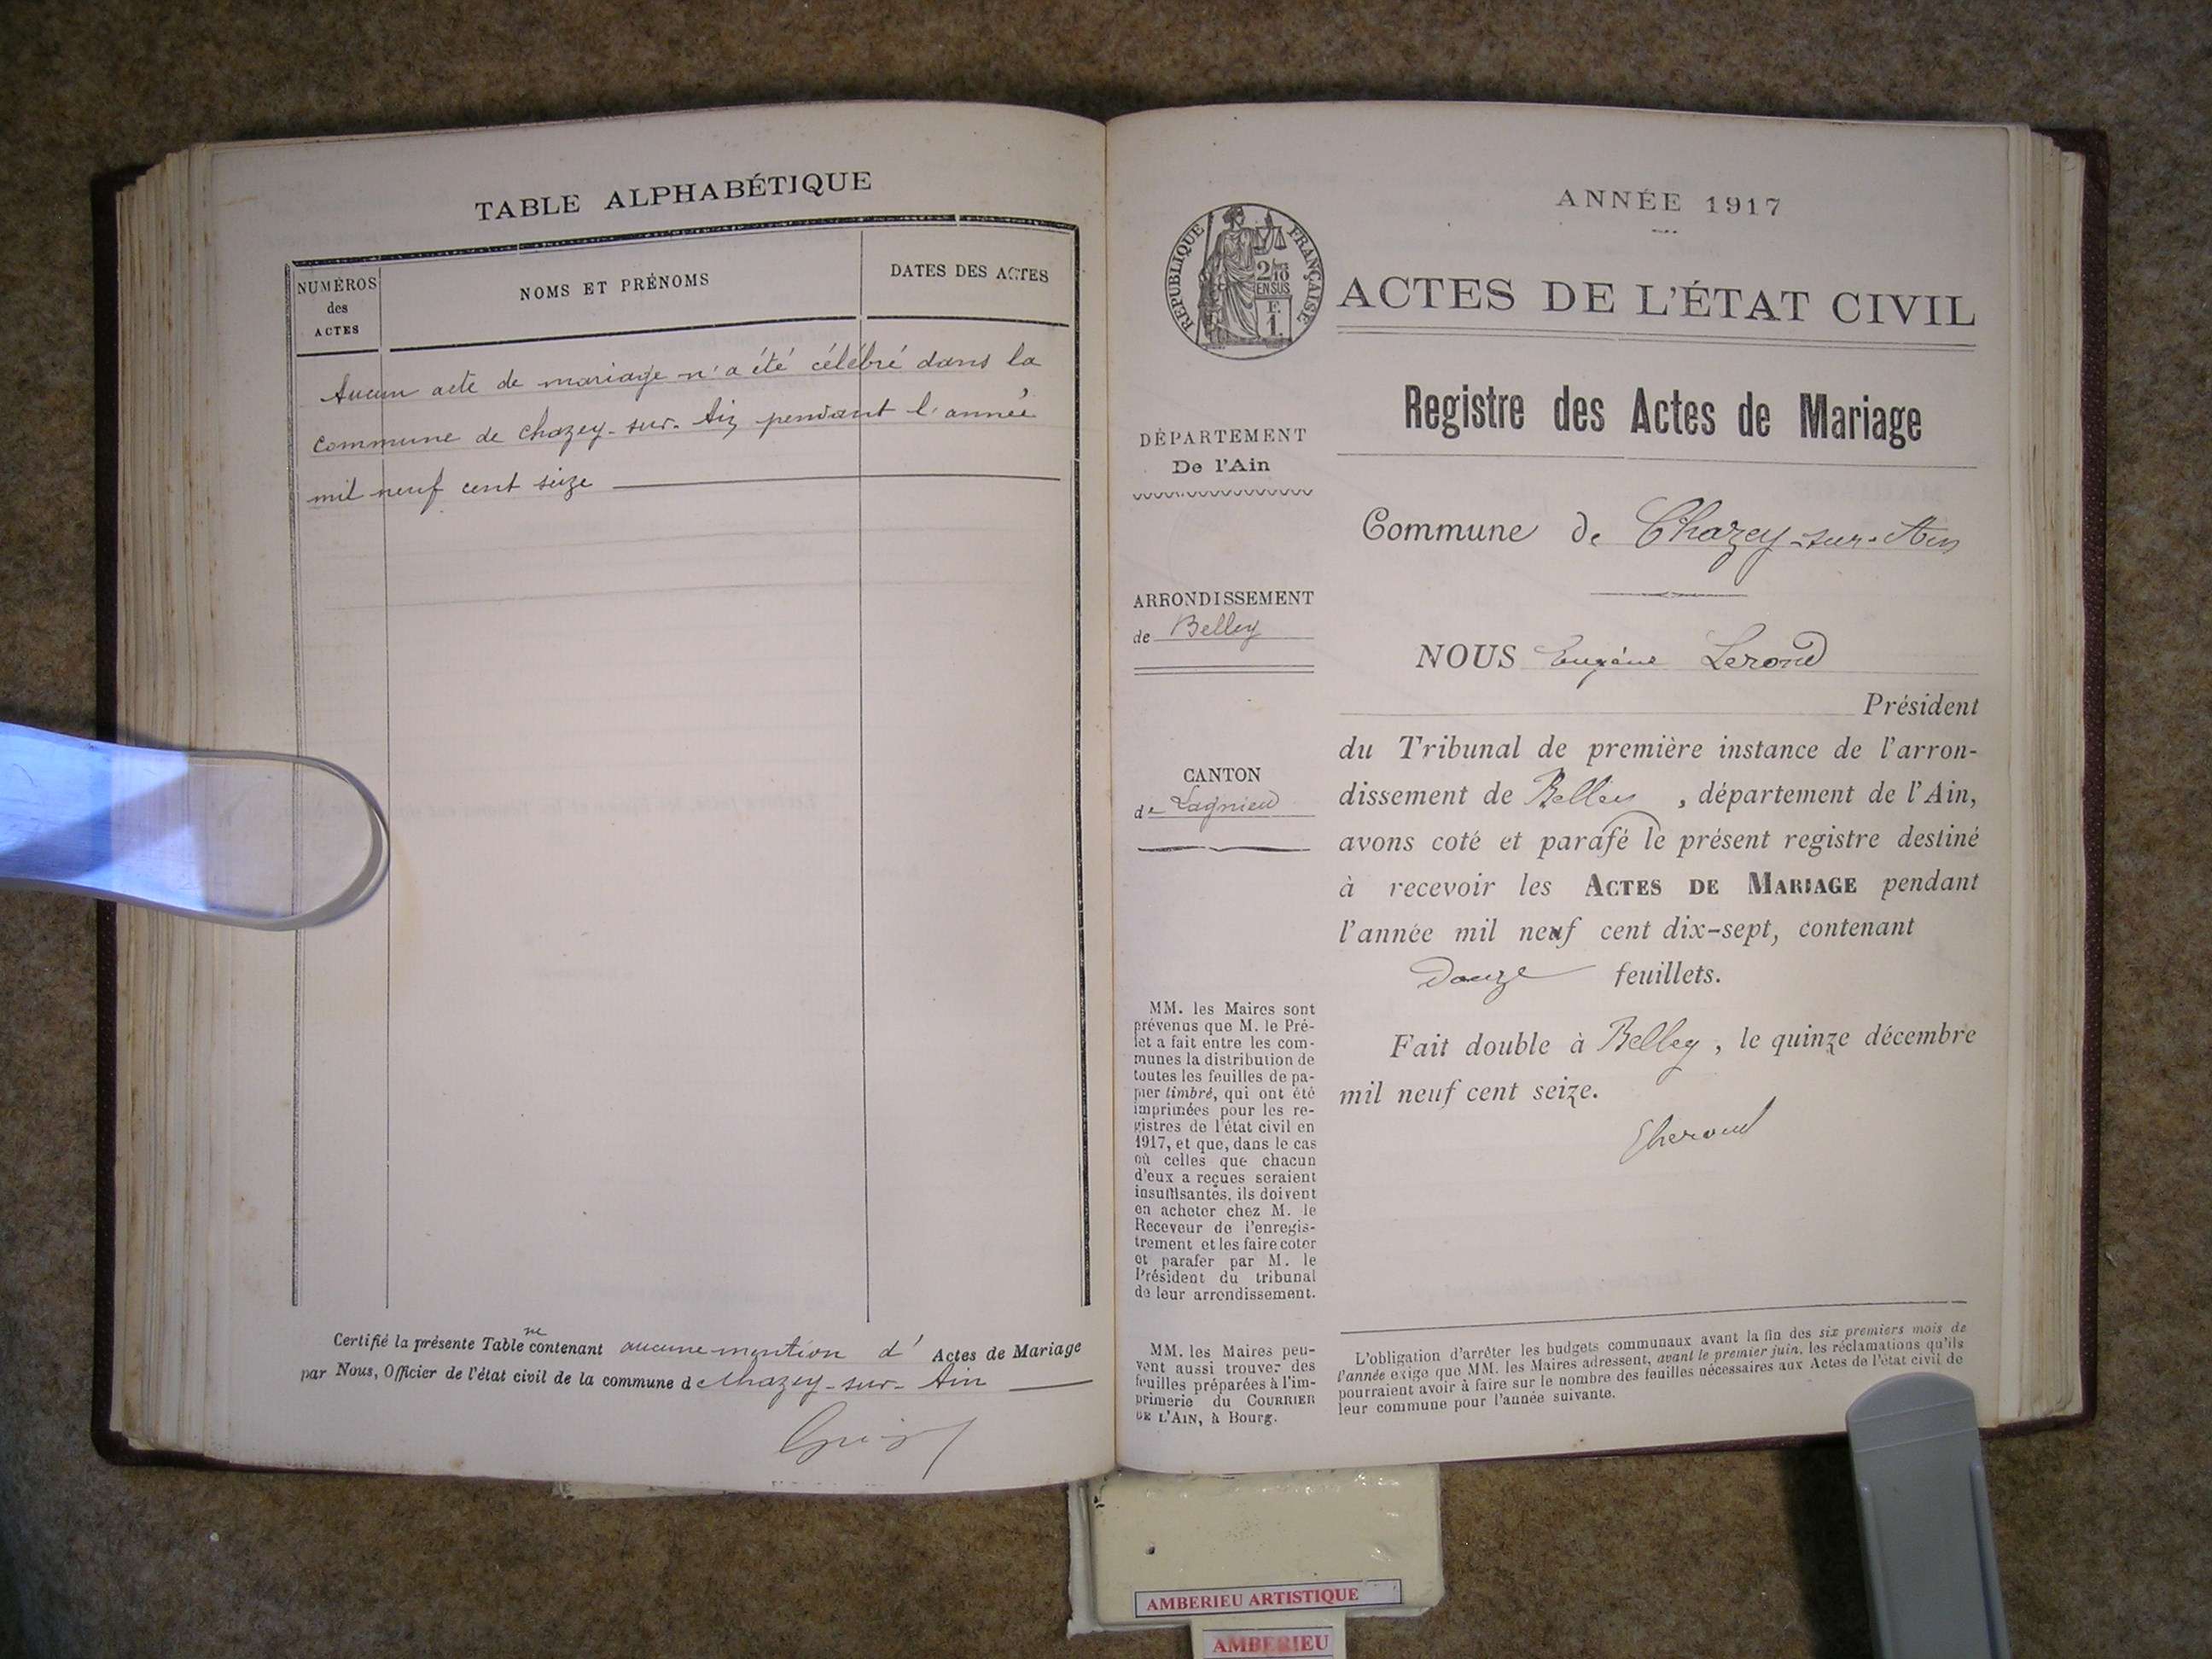 TABLE ALPHABÉTIQUE
NUMÉROS
des
ACTES
NOMS ET PRÉNOMS
DATES DES ACTES
Aucun acte de mariage n'a été célébré dans la
commune de Chazey-sur-Ain pendant l'année
mil neuf cent seize
ne
Certifié la présente Table contenant aucune mention d' Actes de Mariage
par Nous, Officier de l'état civil de la commune de Chazey-sur-Ain
ANNÉE 1917
RÉPUBLIQUE FRANÇAISE
2/10
EN SUS
F.
1.
ACTES DE L'ÉTAT CIVIL
Registre des Actes de Mariage
DÉPARTEMENT
De l'Ain
Commune de Chazey-sur-Ain
ARRONDISSEMENT
de Belley
NOUS Eugène Lerond
Président
du Tribunal de première instance de l'arron-
dissement de Belley , département de l'Ain,
avons coté et parafé le présent registre destiné
à recevoir les ACTES DE MARIAGE pendant
l'année mil neuf cent dix-sept, contenant
Douze feuillets.
Fait double à Belley, le quinze décembre
mil neuf cent seize.
CANTON
de Lagnieu
MM. les Maires sont
prévenus que M. le Pré-
fet a fait entre les com-
munes la distribution de
toutes les feuilles de pa-
pier timbré, qui ont été
imprimées pour les re-
gistres de l'état civil en
1917, et que, dans le cas
où celles que chacun
d'eux a reçues seraient
insuffisantes, ils doivent
en acheter chez M. le
Receveur de l'enregis-
trement et les faire coter
et parafer par M. le
Président du tribunal
de leur arrondissement.
MM. les Maires peu-
vent aussi trouver des
feuilles préparées à l'im-
primerie du COURRIER
DE L'AIN, à Bourg.
L'obligation d'arrêter les budgets communaux avant la fin des six premiers mois de
l'année exige que MM. les Maires adressent, avant le premier juin, les réclamations qu'ils
pourraient avoir à faire sur le nombre des feuilles nécessaires aux Actes de l'état civil de
leur commune pour l'année suivante.
AMBERIEU ARTISTIQUE
AMBERIEU